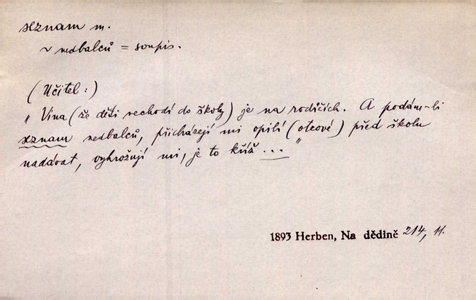 seznam m.
~ nedbalců = soupis.
(Učitel:)
"Vina (že děti nechodí do školy) je na rodičích. A podám-li
seznam nedbalců, přicházejí mi opilí (otcové) před školu
nadávat, vyhrožují mi, je to kříž ..."
1893 Herben, Na dědině 214, 11.